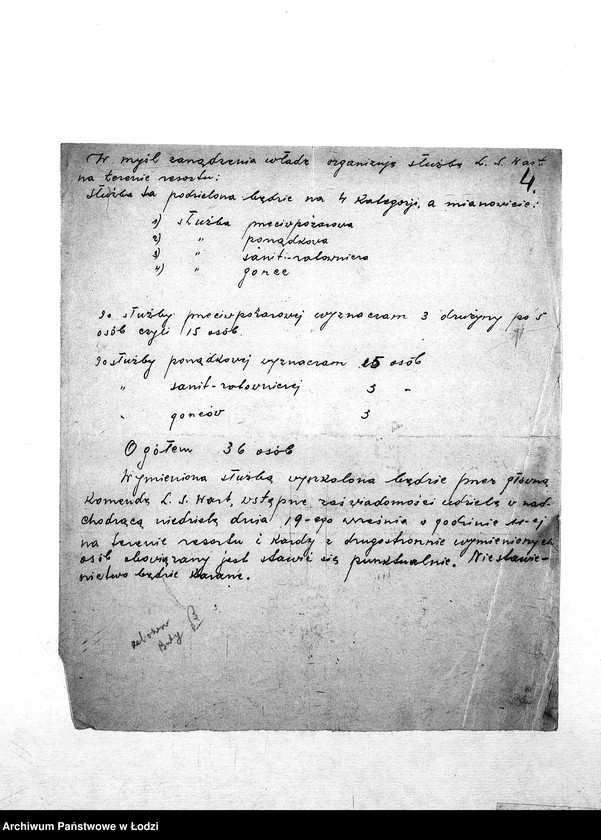 W myśl zarządzenia władz organizuję służbę L. S. Wart.
na terenie resortu:
4.
Służba ta podzielona będzie na 4 kategorji, a mianowicie:
1) służba przeciwpożarowa
2) " porządkowa
3) " sanit.-ratownicza
4) " gońce
Do służby przeciwpożarowej wyznaczam 3 drużyny po 5
osób czyli 15 osób.
Do służby porządkowej wyznaczam 15 osób
" sanit-ratowniczej 3 "
" gońców 3
Ogółem 36 osób
Wymieniona służba wyszkolona będzie przez główną
Komendę L. S. Wart, wstępne zaś wiadomości udzielę w nad-
chodzącą niedzielę dnia 19-ego września o godzinie
na terenie resortu i każdy z drugostronnie wymienionych
osób obowiązany jest stawić się punktualnie. Niestawie-
nictwo będzie karane.
Buty
Archiwum Państwowe w Łodzi